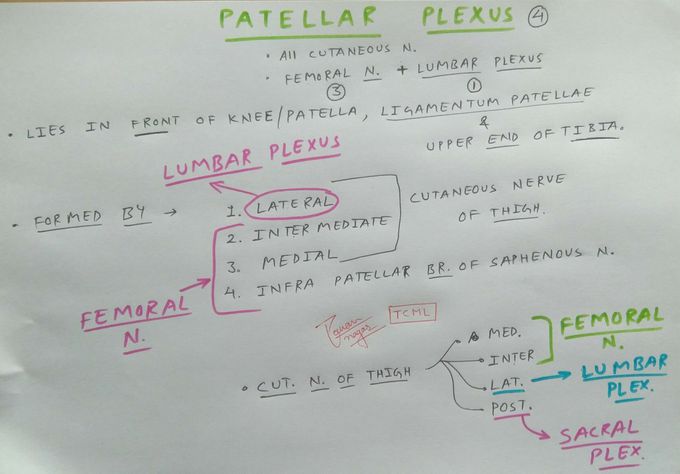 PATELLAR PLEXUS 4
• All CUTANEOUS N.
• FEMORAL N. + LUMBAR PLEXUS
3 1
• LIES IN FRONT OF KNEE/PATELLA, LIGAMENTUM PATELLAE
&
UPPER END OF TIBIA.
LUMBAR PLEXUS
• FORMED BY → 1. LATERAL
2. INTERMEDIATE
3. MEDIAL
CUTANEOUS NERVE
OF THIGH.
4. INFRA PATELLAR BR. OF SAPHENOUS N.
FEMORAL
N.
TCML
• CUT. N. OF THIGH
MED.
INTER
FEMORAL
N.
LAT. → LUMBAR
PLEX.
POST.
SACRAL
PLEX.